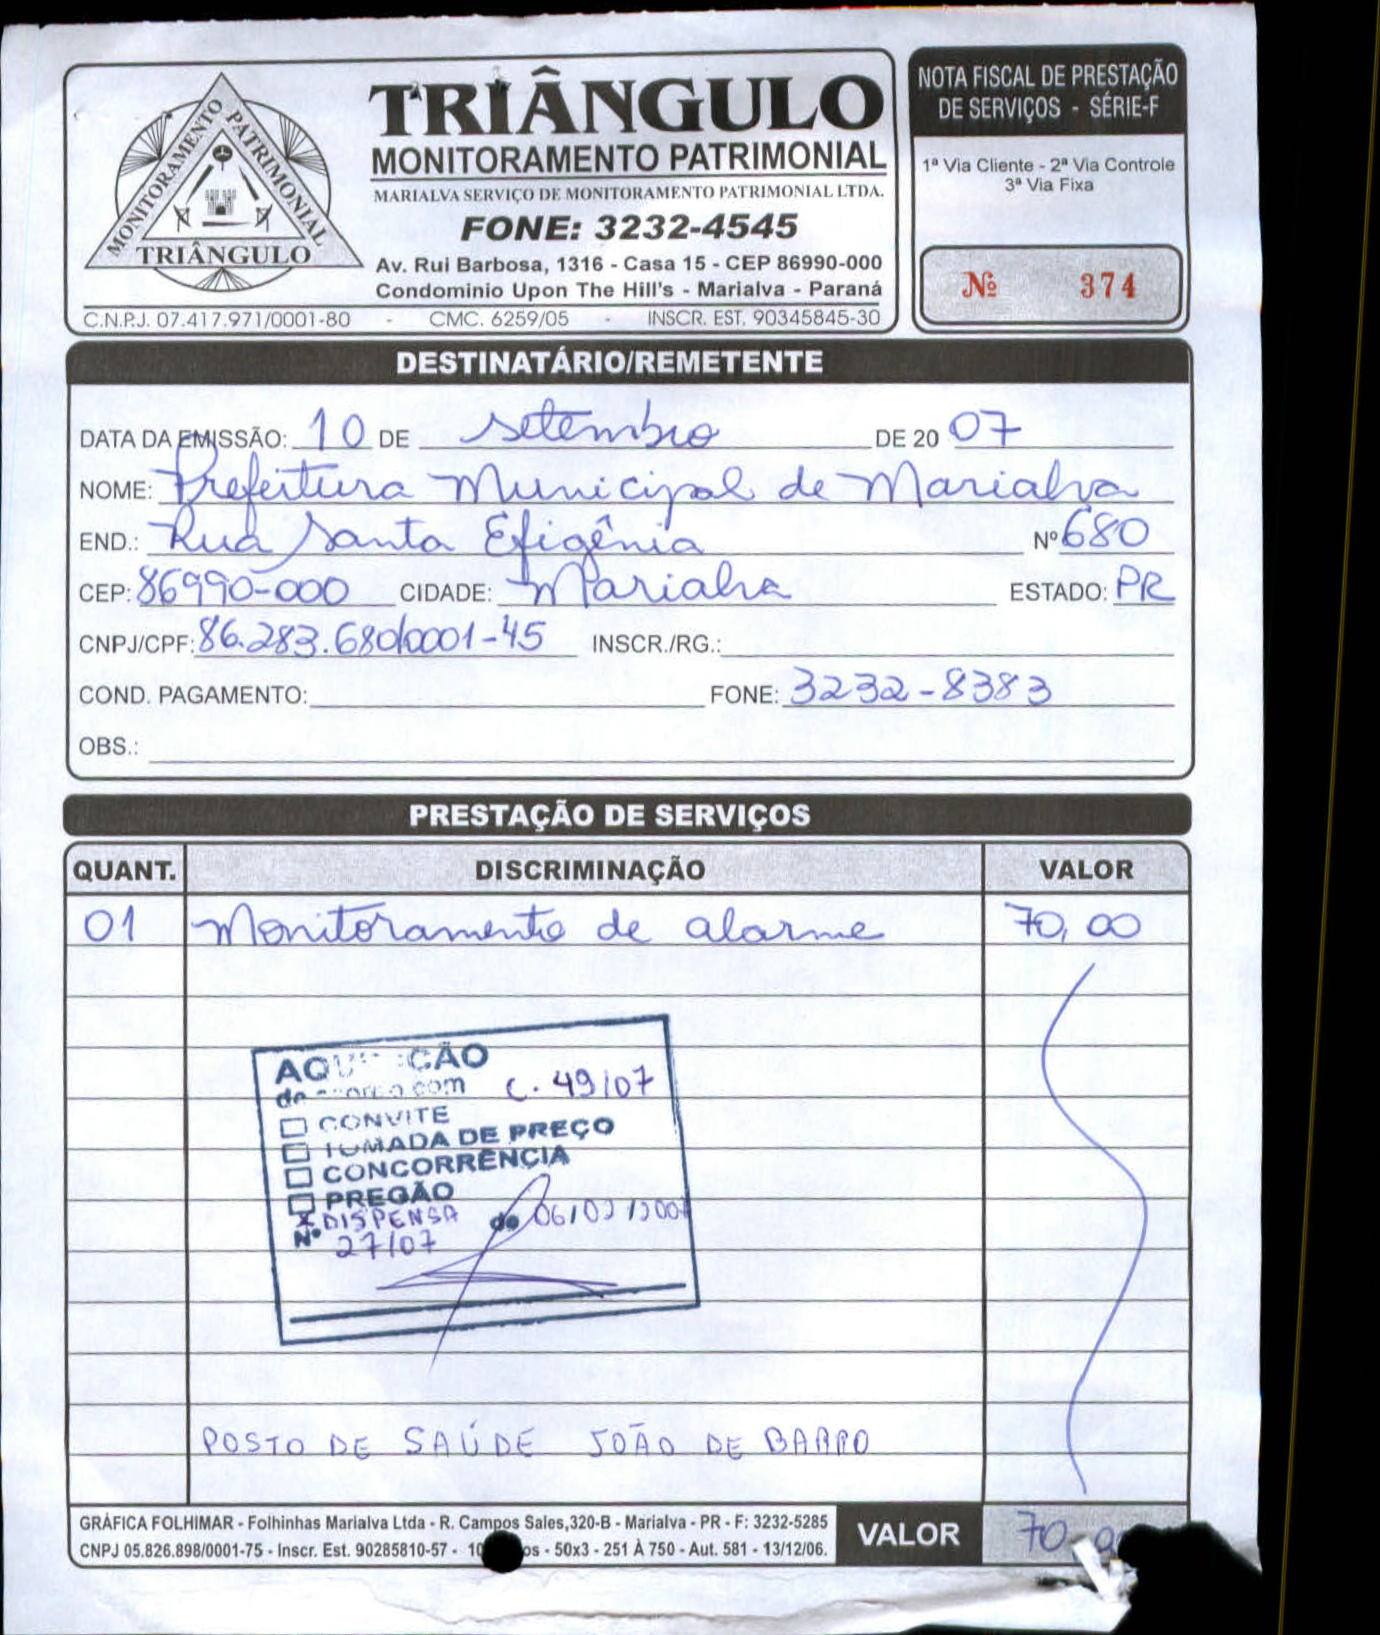 MONITORAMENTO PATRIMONIAL
TRIÂNGULO
TRIÂNGULO
MONITORAMENTO PATRIMONIAL
MARIALVA SERVIÇO DE MONITORAMENTO PATRIMONIAL LTDA.
FONE: 3232-4545
Av. Rui Barbosa, 1316 - Casa 15 - CEP 86990-000
Condominio Upon The Hill's - Marialva - Paraná
C.N.P.J. 07.417.971/0001-80 - CMC. 6259/05 - INSCR. EST. 90345845-30
NOTA FISCAL DE PRESTAÇÃO
DE SERVIÇOS - SÉRIE-F
1ª Via Cliente - 2ª Via Controle
3ª Via Fixa
Nº 374
DESTINATÁRIO/REMETENTE
DATA DA EMISSÃO: 10 DE setembro DE 20 07
NOME: Prefeitura Municipal de Marialva
END.: Rua Santa Efigênia Nº 680
CEP: 86990-000 CIDADE: Marialva ESTADO: PR
CNPJ/CPF: 86.283.680/0001-45 INSCR./RG.:
COND. PAGAMENTO: FONE: 3232-8383
OBS.:
PRESTAÇÃO DE SERVIÇOS
QUANT. DISCRIMINAÇÃO VALOR
01 Monitoramento de alarme 70,00
C. 49/07
CONVITE
TOMADA DE PREÇO
CONCORRÊNCIA
PREGÃO
X DISPENSA de 06/02/2007
Nº 27/07
POSTO DE SAÚDE JOÃO DE BARRO
GRÁFICA FOLHIMAR - Folhinhas Marialva Ltda - R. Campos Sales,320-B - Marialva - PR - F: 3232-5285
CNPJ 05.826.898/0001-75 - Inscr. Est. 90285810-57 - 50x3 - 251 À 750 - Aut. 581 - 13/12/06.
VALOR 70,00